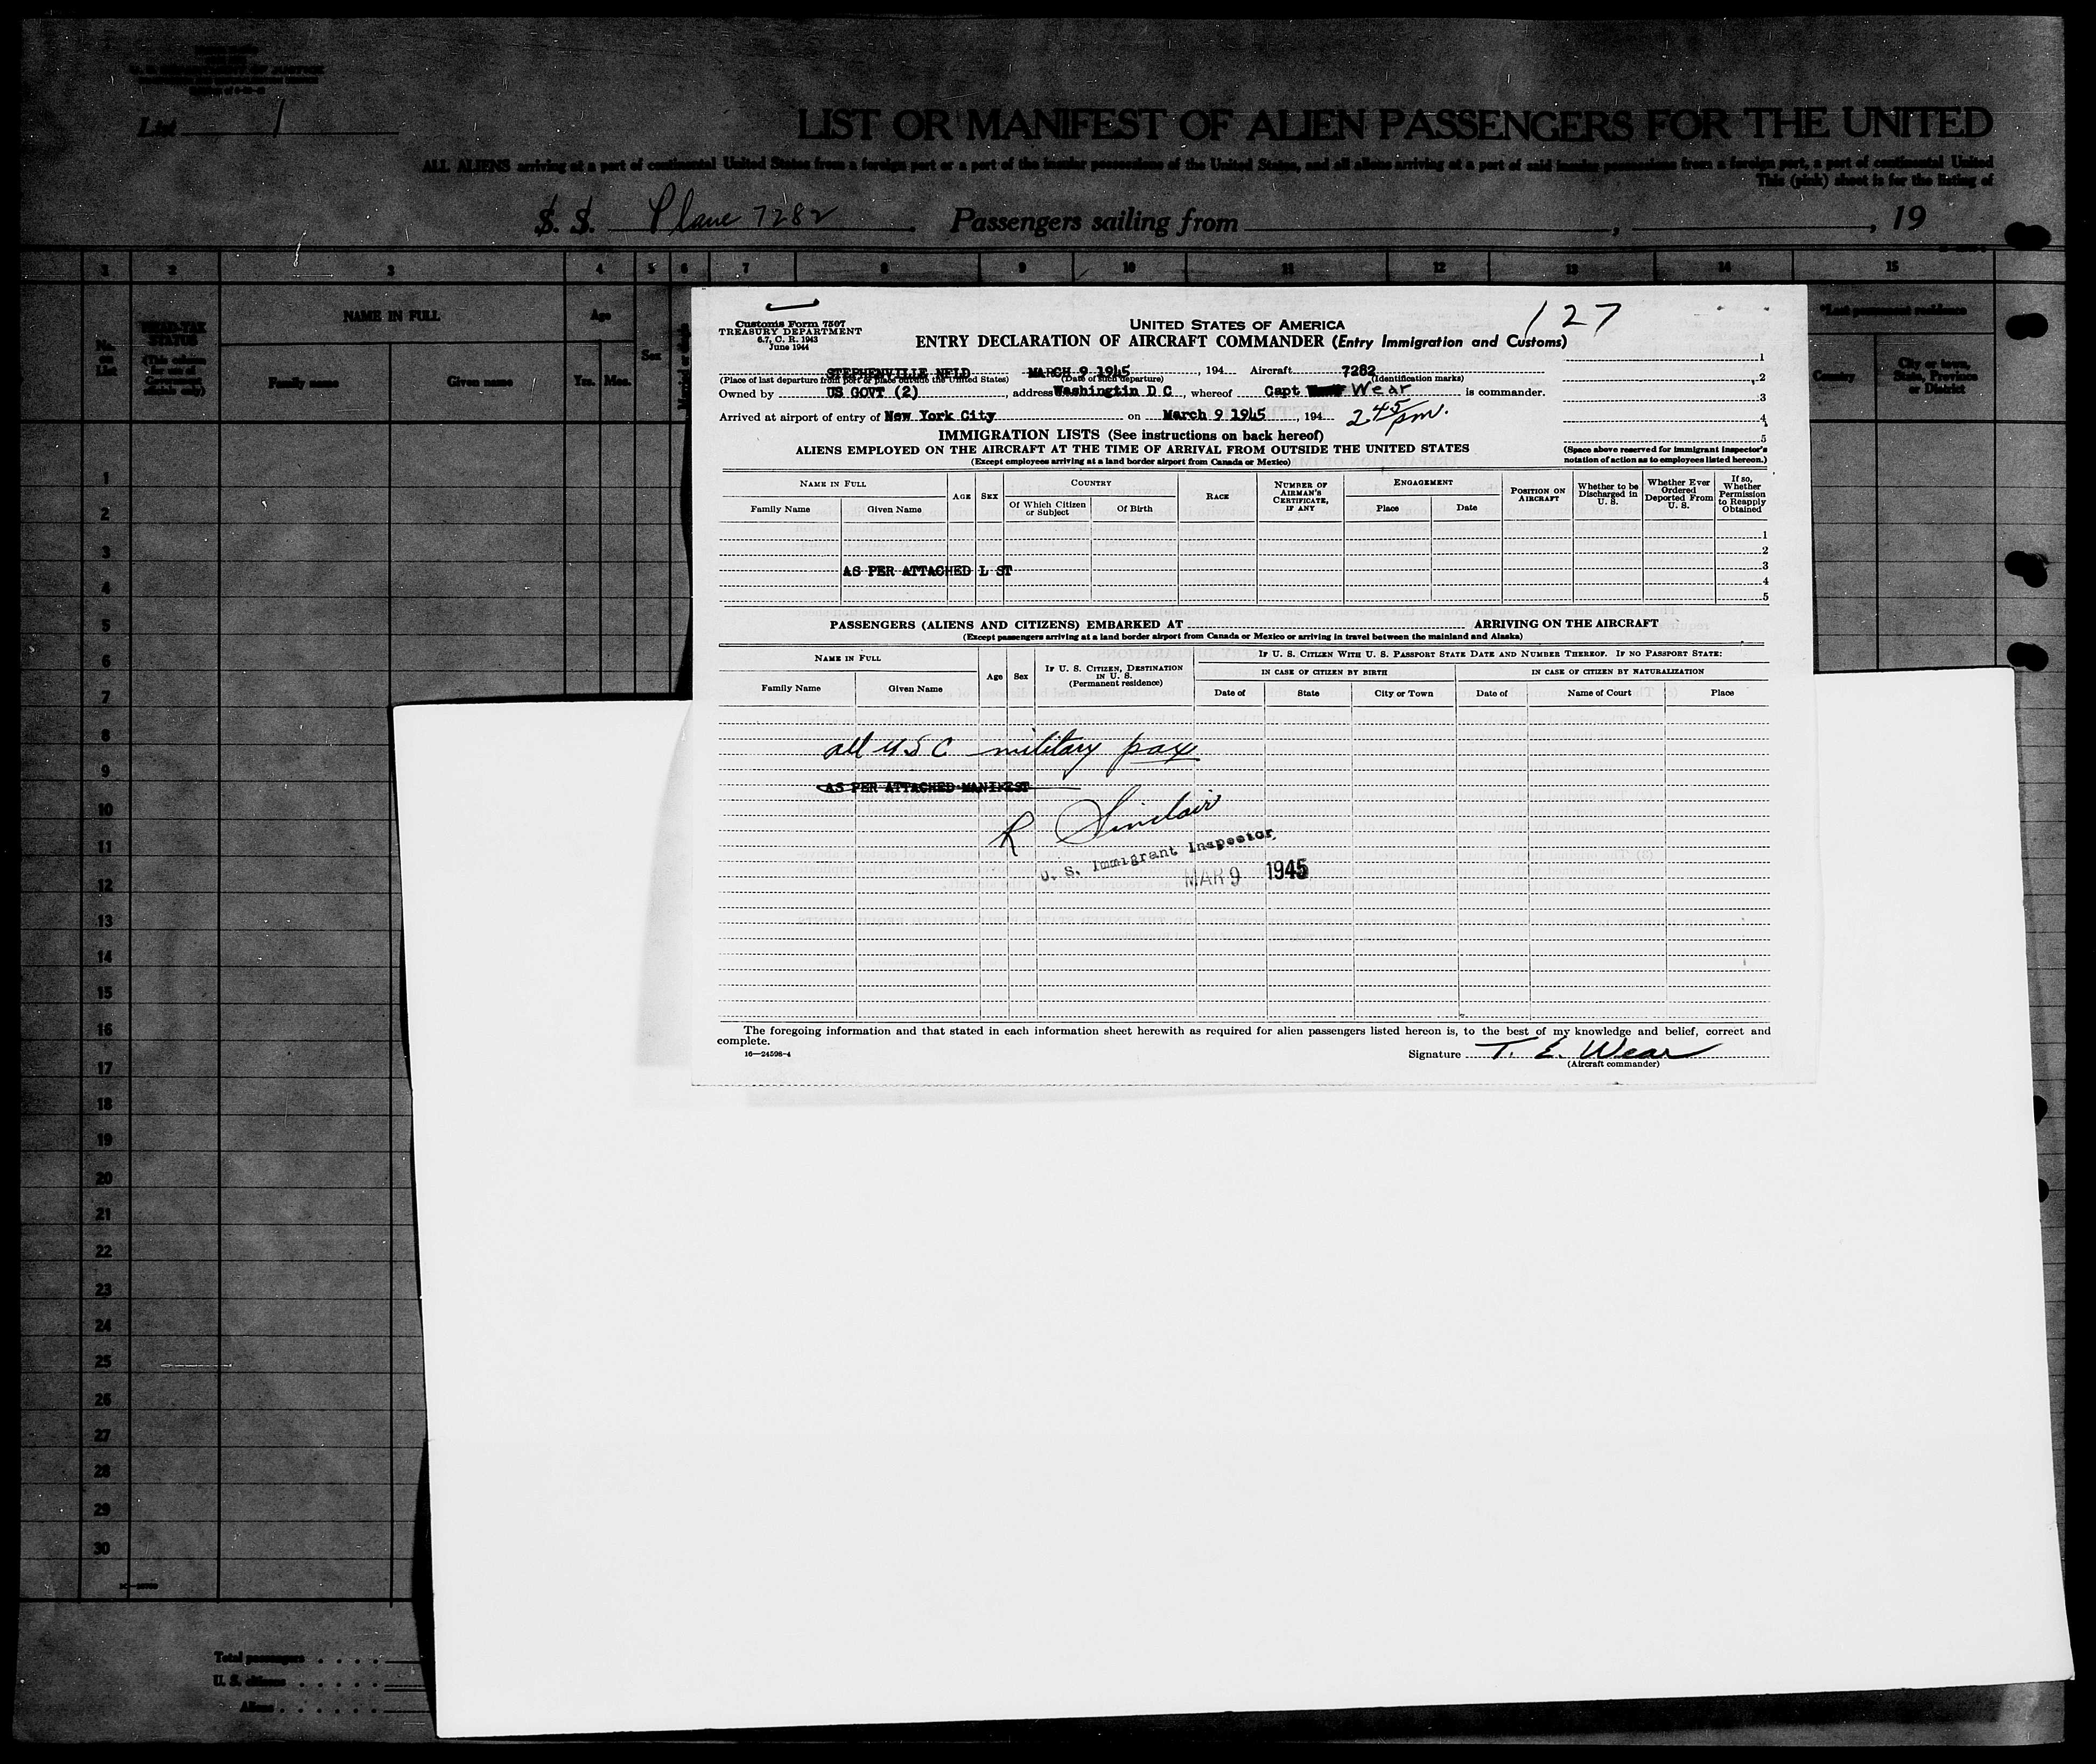 U. S. DEPARTMENT OF JUSTICE
List 1
LIST OR MANIFEST OF ALIEN PASSENGERS FOR THE UNITED
ALL ALIENS arriving at a port of continental United States from a foreign port or a port of the insular possessions of the United States, and all aliens arriving at a port of said insular possessions from a foreign port, a port of continental United
This (pink) sheet is for the listing of
S. S. Plane 7282 Passengers sailing from , , 19
1 2 3 4 5 6 7 8 9 10 11 12 13 14 15
No. on List
HEAD-TAX STATUS
(This column for use of Government officials only)
NAME IN FULL
Family name Given name
Age
Yrs. Mos.
Sex
Married or single
*Last permanent residence
Country
City or town, State, Province or District
127
Customs Form 7507
TREASURY DEPARTMENT
6.7, C. R. 1943
June 1944
UNITED STATES OF AMERICA
ENTRY DECLARATION OF AIRCRAFT COMMANDER (Entry Immigration and Customs)
STEPHENVILLE NFLD MARCH 9 1945, 194 Aircraft 7282
(Place of last departure from port or place outside the United States) (Date of such departure) (Identification marks)
Owned by US GOVT (2), address Washingtin D C, whereof Capt Wear is commander.
Arrived at airport of entry of New York City on March 9 1945, 194 2 45 pm.
1
2
3
4
5
(Space above reserved for immigrant inspector's notation of action as to employees listed hereon.)
IMMIGRATION LISTS (See instructions on back hereof)
ALIENS EMPLOYED ON THE AIRCRAFT AT THE TIME OF ARRIVAL FROM OUTSIDE THE UNITED STATES
(Except employees arriving at a land border airport from Canada or Mexico)
NAME IN FULL
Family Name Given Name
AGE SEX
COUNTRY
Of Which Citizen or Subject Of Birth
RACE
NUMBER OF AIRMAN'S CERTIFICATE, IF ANY
ENGAGEMENT
Place Date
POSITION ON AIRCRAFT
Whether to be Discharged in U. S.
Whether Ever Ordered Deported From U. S.
If so, Whether Permission to Reapply Obtained
1
2
AS PER ATTACHED L ST 3
4
5
PASSENGERS (ALIENS AND CITIZENS) EMBARKED AT ARRIVING ON THE AIRCRAFT
(Except passengers arriving at a land border airport from Canada or Mexico or arriving in travel between the mainland and Alaska)
NAME IN FULL
Family Name Given Name
Age Sex
IF U. S. CITIZEN, DESTINATION IN U. S.
(Permanent residence)
IF U. S. CITIZEN WITH U. S. PASSPORT STATE DATE AND NUMBER THEREOF. IF NO PASSPORT STATE:
IN CASE OF CITIZEN BY BIRTH IN CASE OF CITIZEN BY NATURALIZATION
Date of State City or Town Date of Name of Court Place
all U S C military pax
AS PER ATTACHED MANIFEST
R Sinclair
U. S. Immigrant Inspector
MAR 9 1945
The foregoing information and that stated in each information sheet herewith as required for alien passengers listed hereon is, to the best of my knowledge and belief, correct and
complete.
16—24598-4
Signature T. E. Wear
(Aircraft commander)
1
2
3
4
5
6
7
8
9
10
11
12
13
14
15
16
17
18
19
20
21
22
23
24
25
26
27
28
29
30
Total passengers . . . .
U. S. citizens . . . . .
Aliens . . . . . .